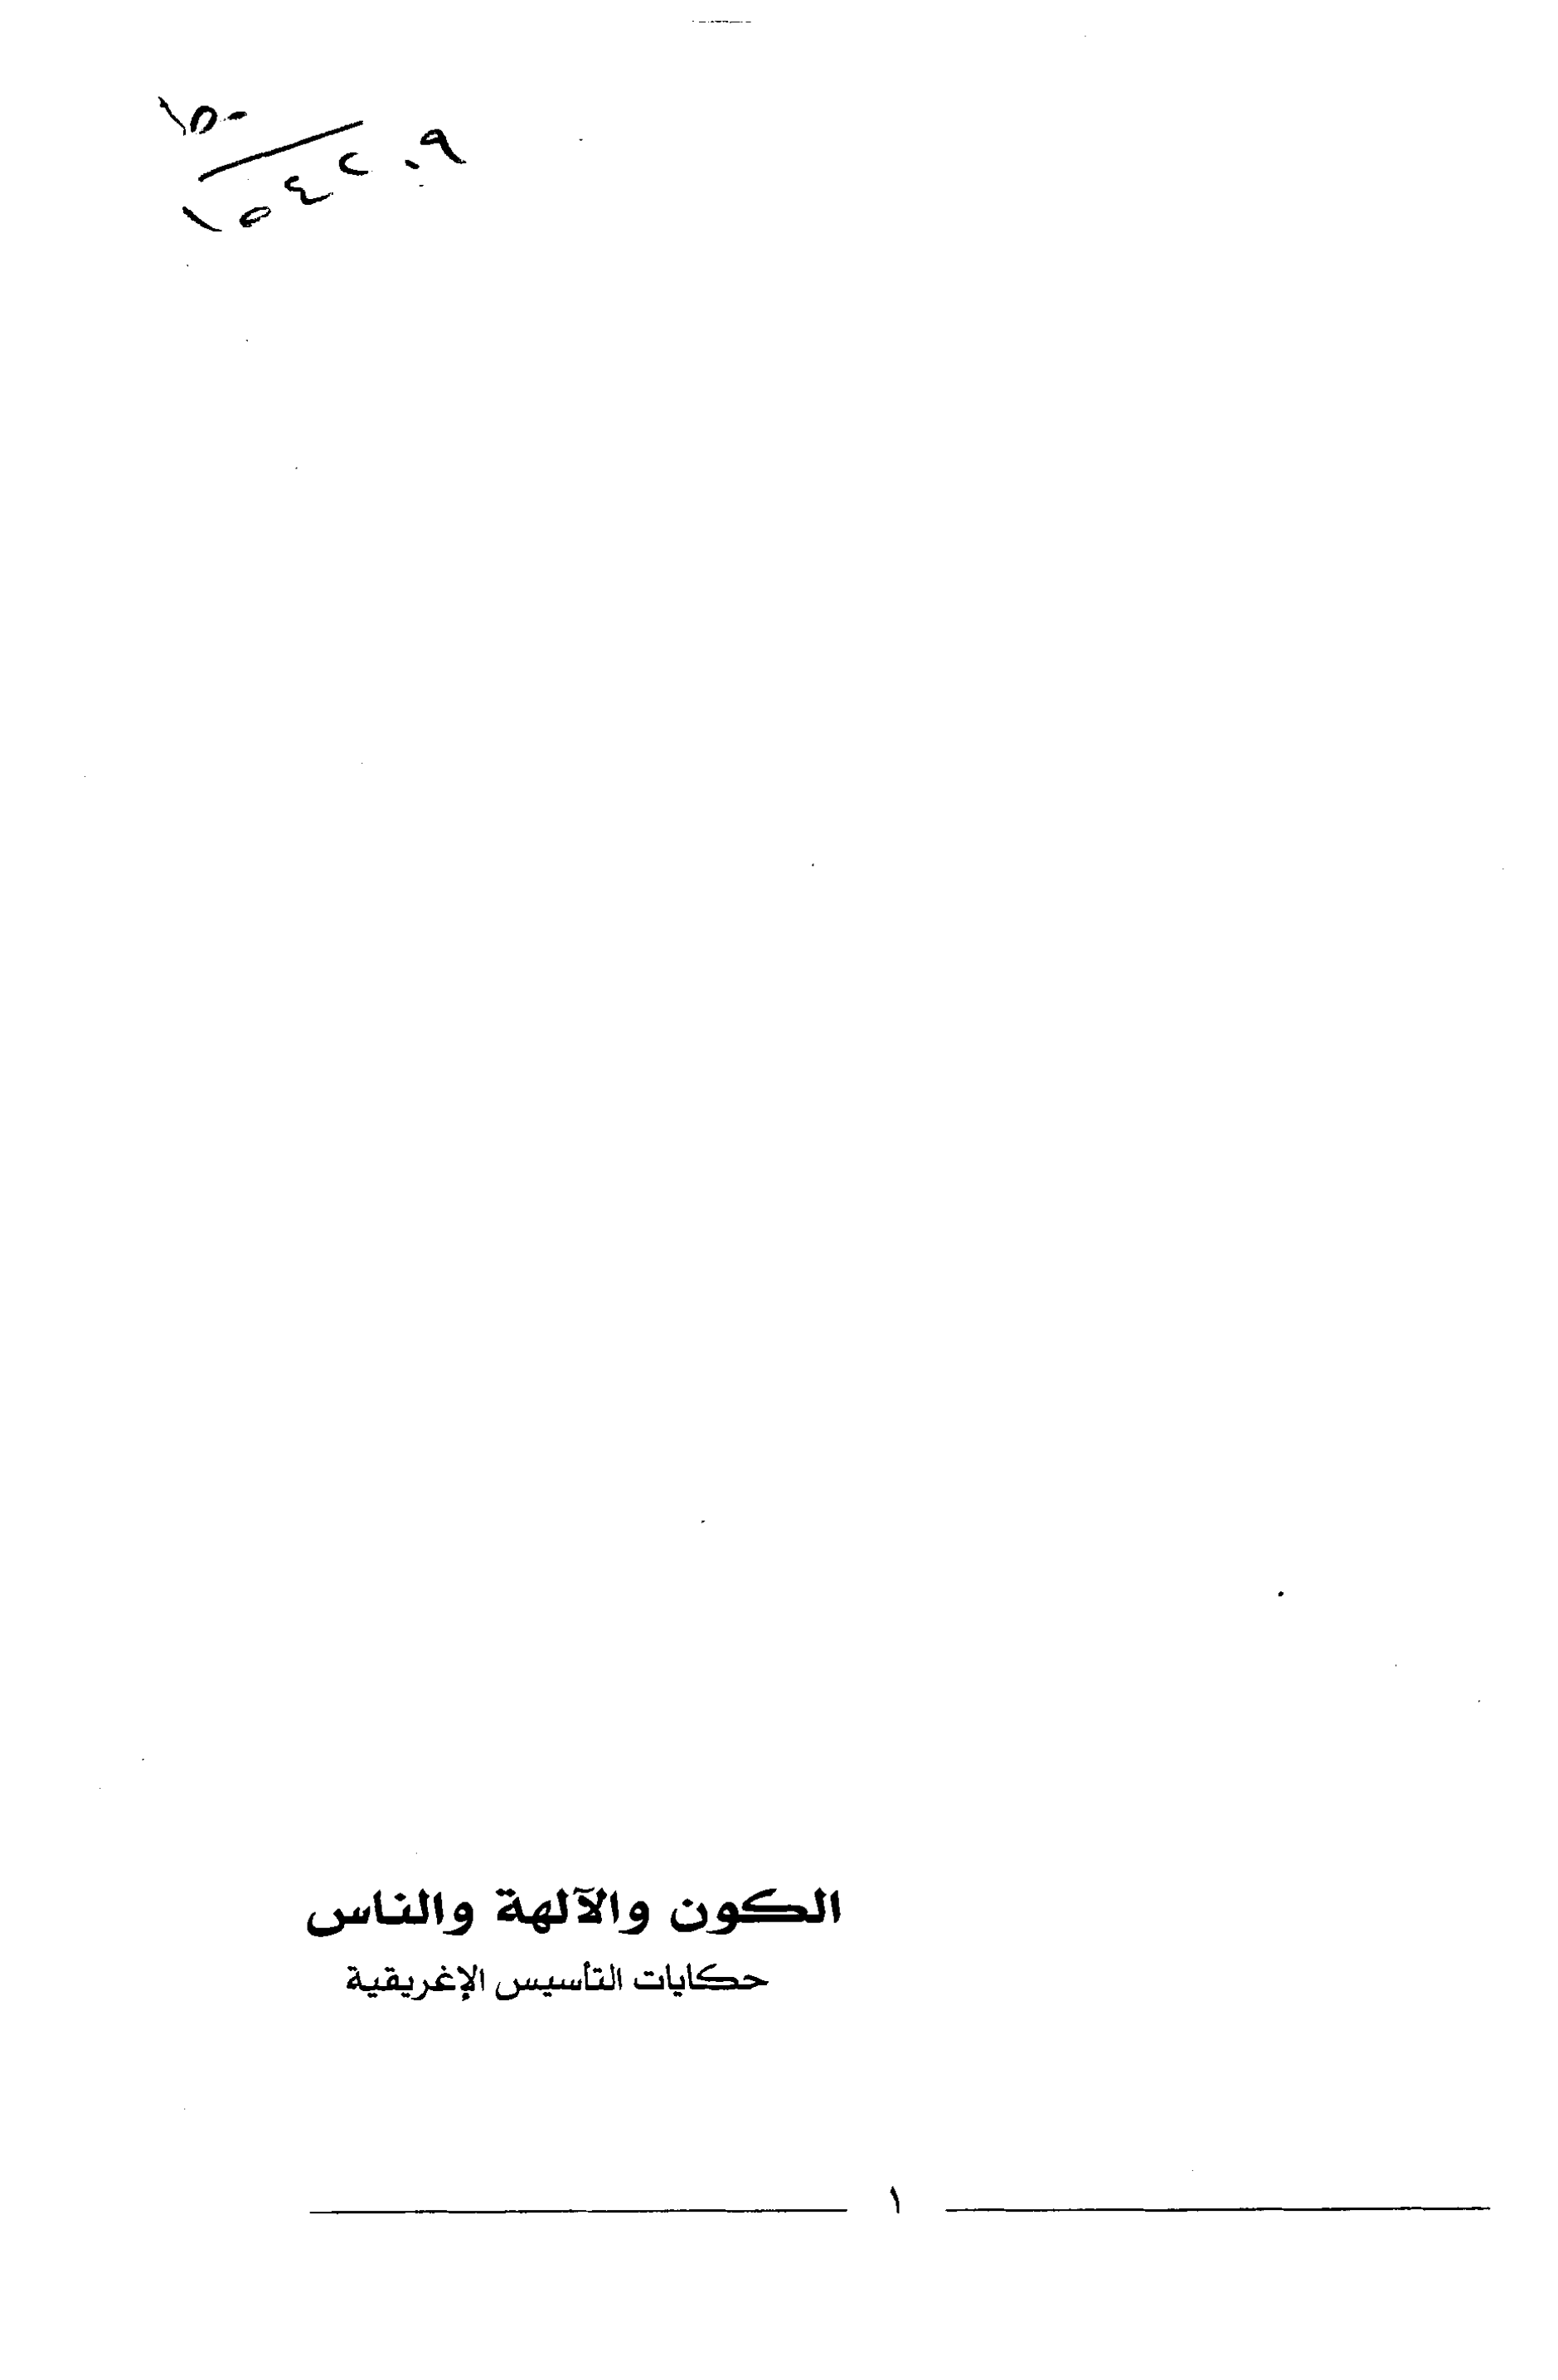 ١٥٠
١٥٤٢٠٩
الكون والآلهة والناس
حكايات التأسيس الإغريقية
١